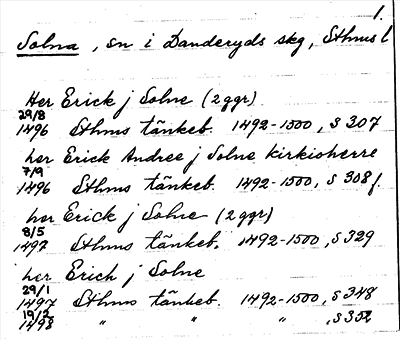 1.
Solna, sn i Danderyds skg, Sthms l
Her Erick j Solne (2 ggr)
29/8
1496 Sthms tänkeb. 1492-1500, s 307
her Erick Andree j Solne kirkioherre
7/9
1496 Sthms tänkeb. 1492-1500, s 308 f.
her Erick j Solne (2 ggr)
8/5
1497 Sthms tänkeb. 1492-1500, s 329
her Erich j Solne
29/1
1497 Sthms tänkeb. 1492-1500, s 348
19/2
1498 " " " , s 352